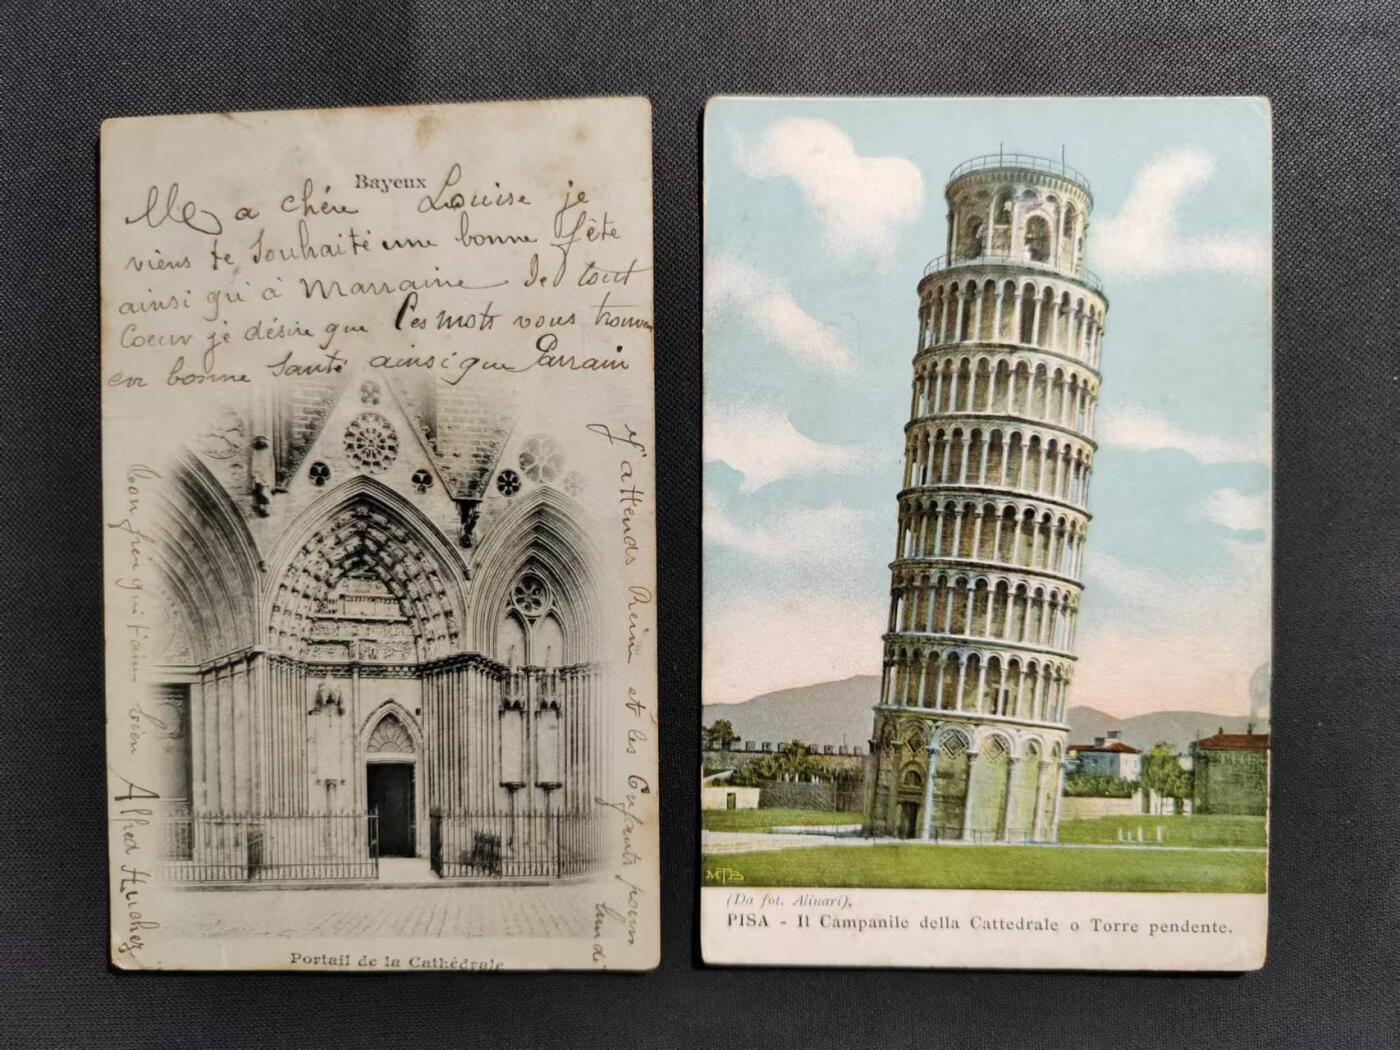 Bayeux
Ma chére Louise je
viens te souhaité une bonne fête
ainsi qu'à Marraine De tout
Coeur je désire que Ces mots vous trouve
en bonne santé ainsi que Parrain
J'attends Reine et les Enfants pour
lundi
ton qui t'aime bien Alfred
Portail de la Cathédrale
MTB
(Da fot. Alinari).
PISA - Il Campanile della Cattedrale o Torre pendente.